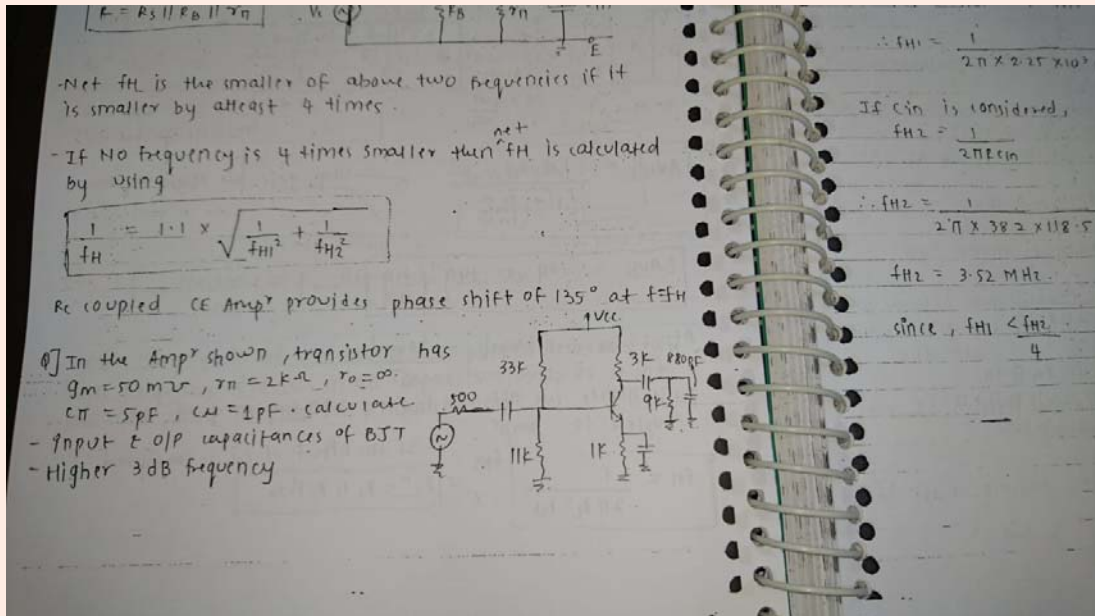 R = RS || RB || rπ
Vs
RB
rπ
E
- Net fH is the smaller of above two frequencies if it
is smaller by atleast 4 times.
- If NO frequency is 4 times smaller then net fH is calculated
by using
1/fH = 1.1 × √(1/fH1² + 1/fH2²)
Rc coupled CE Ampr provides phase shift of 135° at f=fH
Q] In the Ampr shown, transistor has
gm = 50 m℧, rπ = 2k Ω, ro = ∞.
Cπ = 5pF, Cμ = 1pF. calculate
- Input & O/P capacitances of BJT
- Higher 3dB frequency
Vcc
33k
3k
880pF
500
9k
11k
1k
∴ fH1 = 1/2π × 2.25 × 10³
If Cin is considered,
fH2 = 1/2πRCin
∴ fH2 = 1/2π × 382 × 118.5
fH2 = 3.52 MHz.
since, fH1 < fH2/4